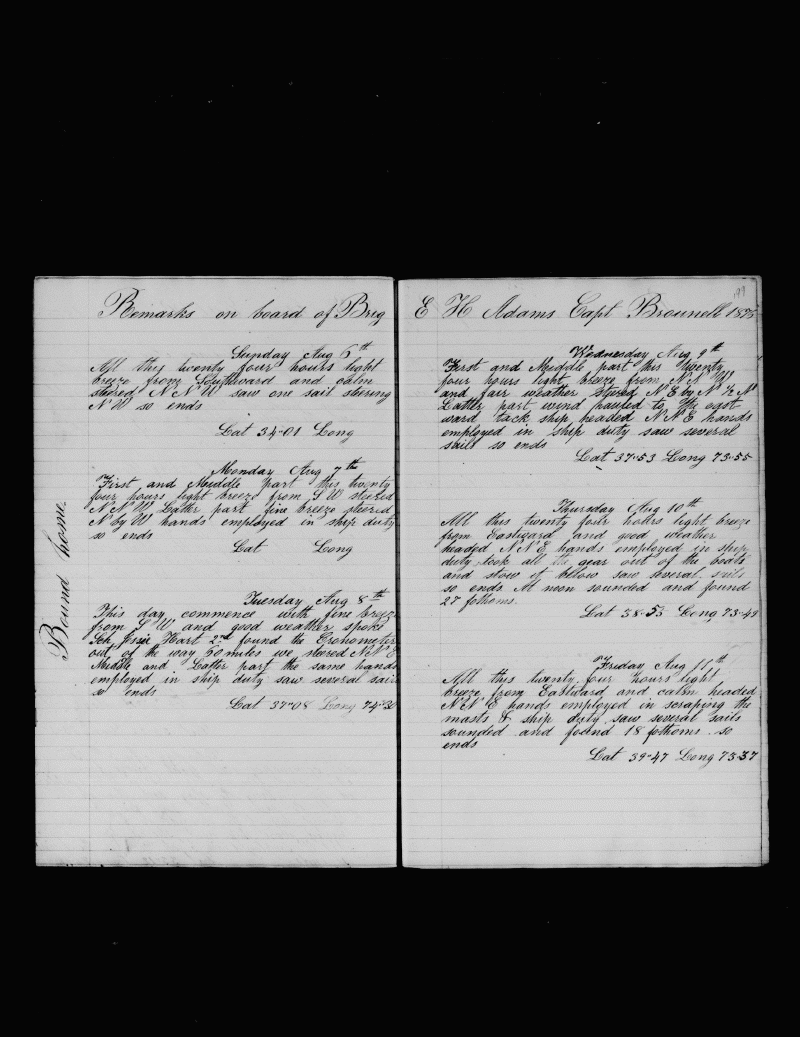 Remarks on board of Brig
Sunday Aug 6th
All this twenty four hours light
breeze from Southward and calm
stered N N W saw one sail stering
N W so ends
Lat 34-01 Long
Monday Aug 7th
First and Middle part this twenty
four hours light breeze from S W steered
N N W Latter part fine breeze steered
N by W hands employed in ship duty
so ends
Lat Long
Bound home.
Tuesday Aug 8th
This day commence with fine breeze
from S W and good weather spoke
Sch Jssie Hart 2nd found the Cronometer
out of the way 60 miles we steared N N E
Middle and Latter part the same hands
employed in ship duty saw several sail
so ends
Lat 37-08 Long 74-30
E H Adams Capt Brounell
Wednesday Aug 9th
First and Middle part this twenty
four hours light breeze from N N W
and fair weather stered N E by N 1/2 N
Latter part wind hauled to the east
ward tack ship headed N N E hands
employed in ship duty saw several
sails so ends
Lat 37-53 Long 73-55
Thursday Aug 10th
All this twenty four hours light breeze
from Eastward and good weather
headed N N E hands employed in ship
duty took all the gear out of the boats
and stow it below saw several sails
so ends At noon sounded and found
27 fothoms.
Lat 38-53 Long 73-49
Friday Aug 11th
All this twenty four hours light
breeze from Eastward and calm headed
N N E hands employed in scraping the
masts & ship duty saw several sails
sounded and found 18 fothoms. so
ends
Lat 39-47 Long 73-37